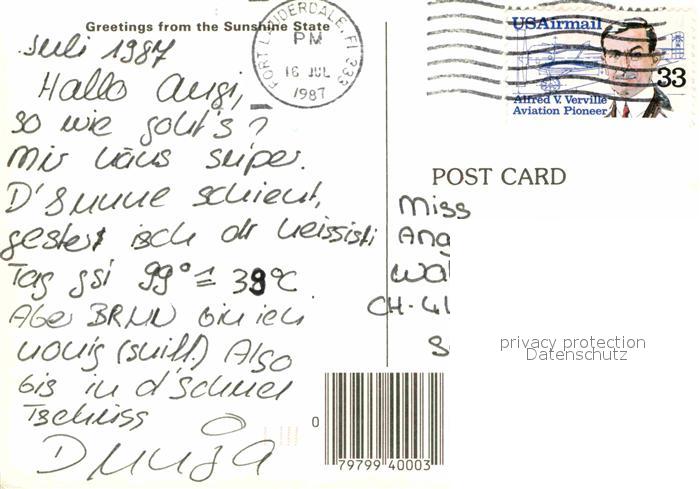 Greetings from the Sunshine State
Juli 1987
Hallo Angi,
so wie goht's?
Mir häns super.
D'Sunne schient,
gester isch dr heissisti
Tag gsi 99° ≙ 39°C
Aber BRUUN bin ich
nonig (snift.) Also
bis in d'Schuel
Tschüss
FORT LAUDERDALE, FL 333
PM
16 JUL
1987
USAirmail
33
Alfred V. Verville
Aviation Pioneer
POST CARD
Miss
Ang
Wal
CH-41
S
privacy protection
Datenschutz
0
79799 40003